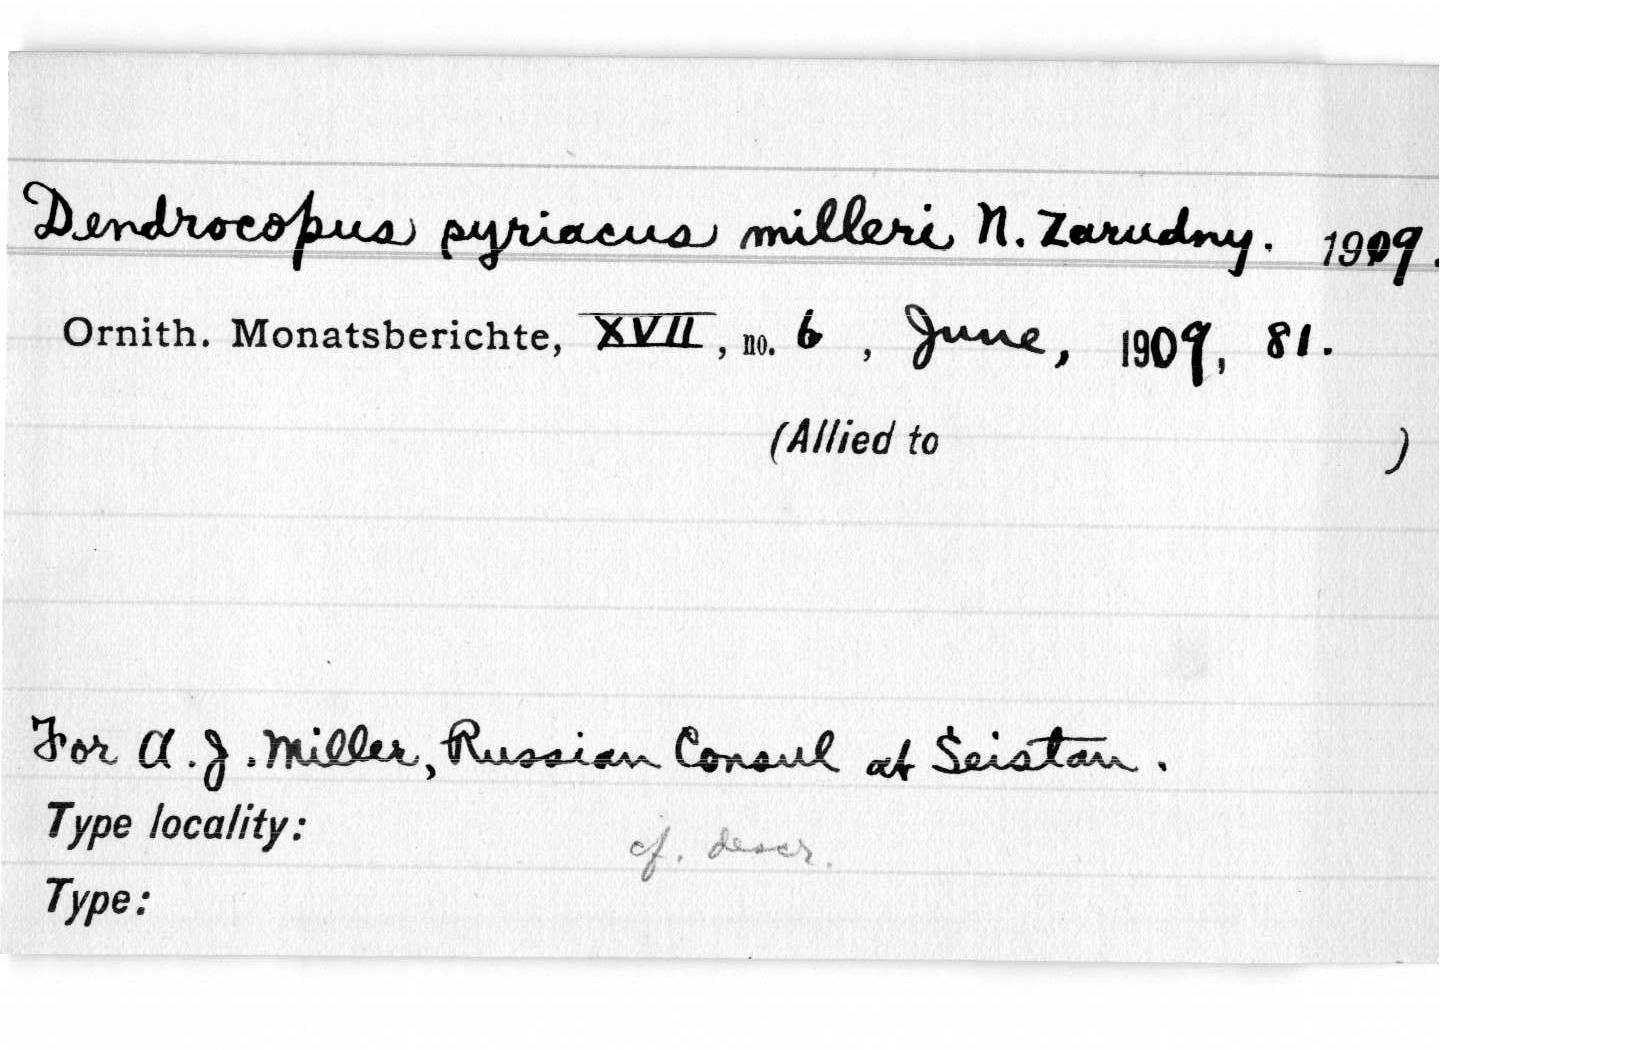 Dendrocopus syriacus milleri N. Zarudny. 1909.
Ornith. Monatsberichte, XVII, no. 6, June, 1909, 81.
(Allied to )
For A. J. Miller, Russian Consul at Seistan.
Type locality:
cf. descr.
Type: